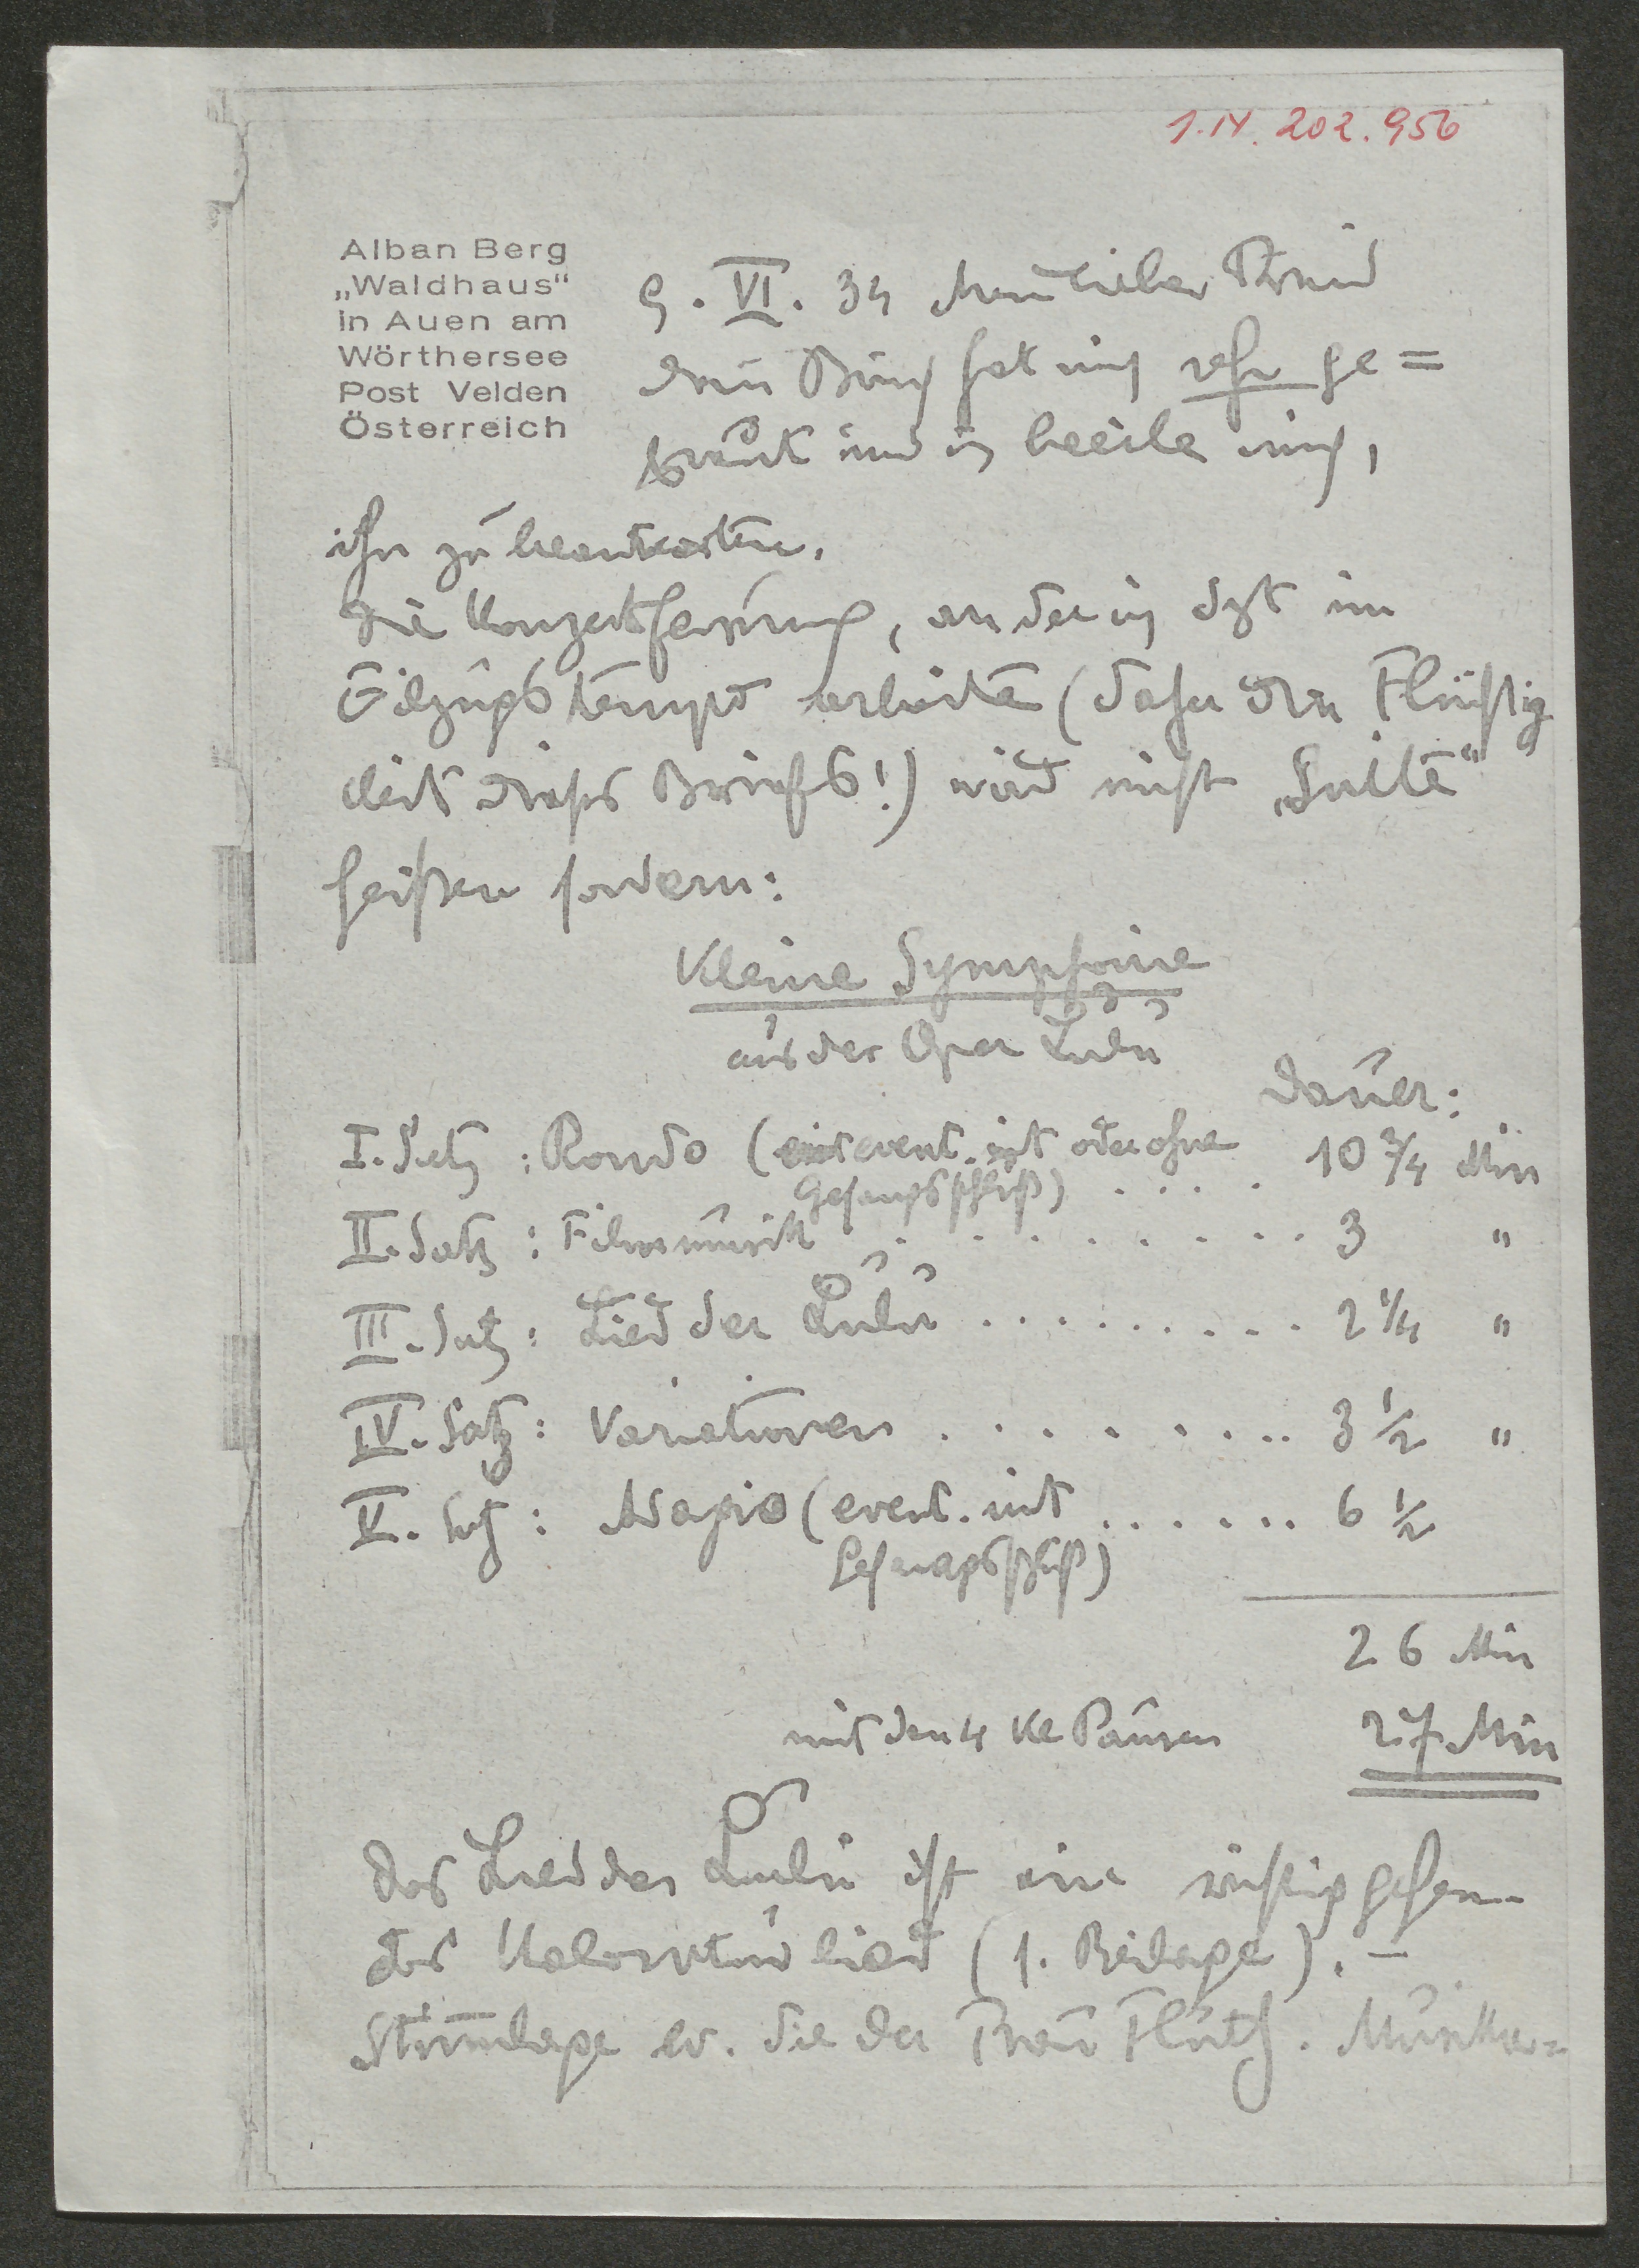 1.N. 202.956
Alban Berg
„Waldhaus“
in Auen am
Wörthersee
Post Velden
Österreich
9. VI. 34 Mein lieber Freund
Dein Brief hat mich sehr ge=
kränkt und ich beeile mich,
ihn zu beantworten.
Die Konzertfassung, an der ich dzt im
Eilzugstempo arbeite (daher die Flüchtig
keit dieses Briefes!) wird nicht „Suite“
heißen sondern:
Kleine Symphonie
aus der Oper Lulu
Dauer:
I. Satz: Rondo (event. mit oder ohne 10 3/4 Min
Gesangsschluß) . . . .
II. Satz: Filmmusik . . . . . . . . . 3 "
III. Satz: Lied der Lulu . . . . . . . . . 2 1/4 "
IV. Satz: Variationen . . . . . . . . 3 1/2 "
V. Satz: Adagio (event. mit . . . . . . 6 1/2
Gesangsschluß)
26 Min
mit den 4 kl Pausen 27 Min
Das Lied der Lulu ist ein richtiggehen-
des Koloraturlied (1. Beilage). –
Stimmlage ev. die der Frau Fluth.